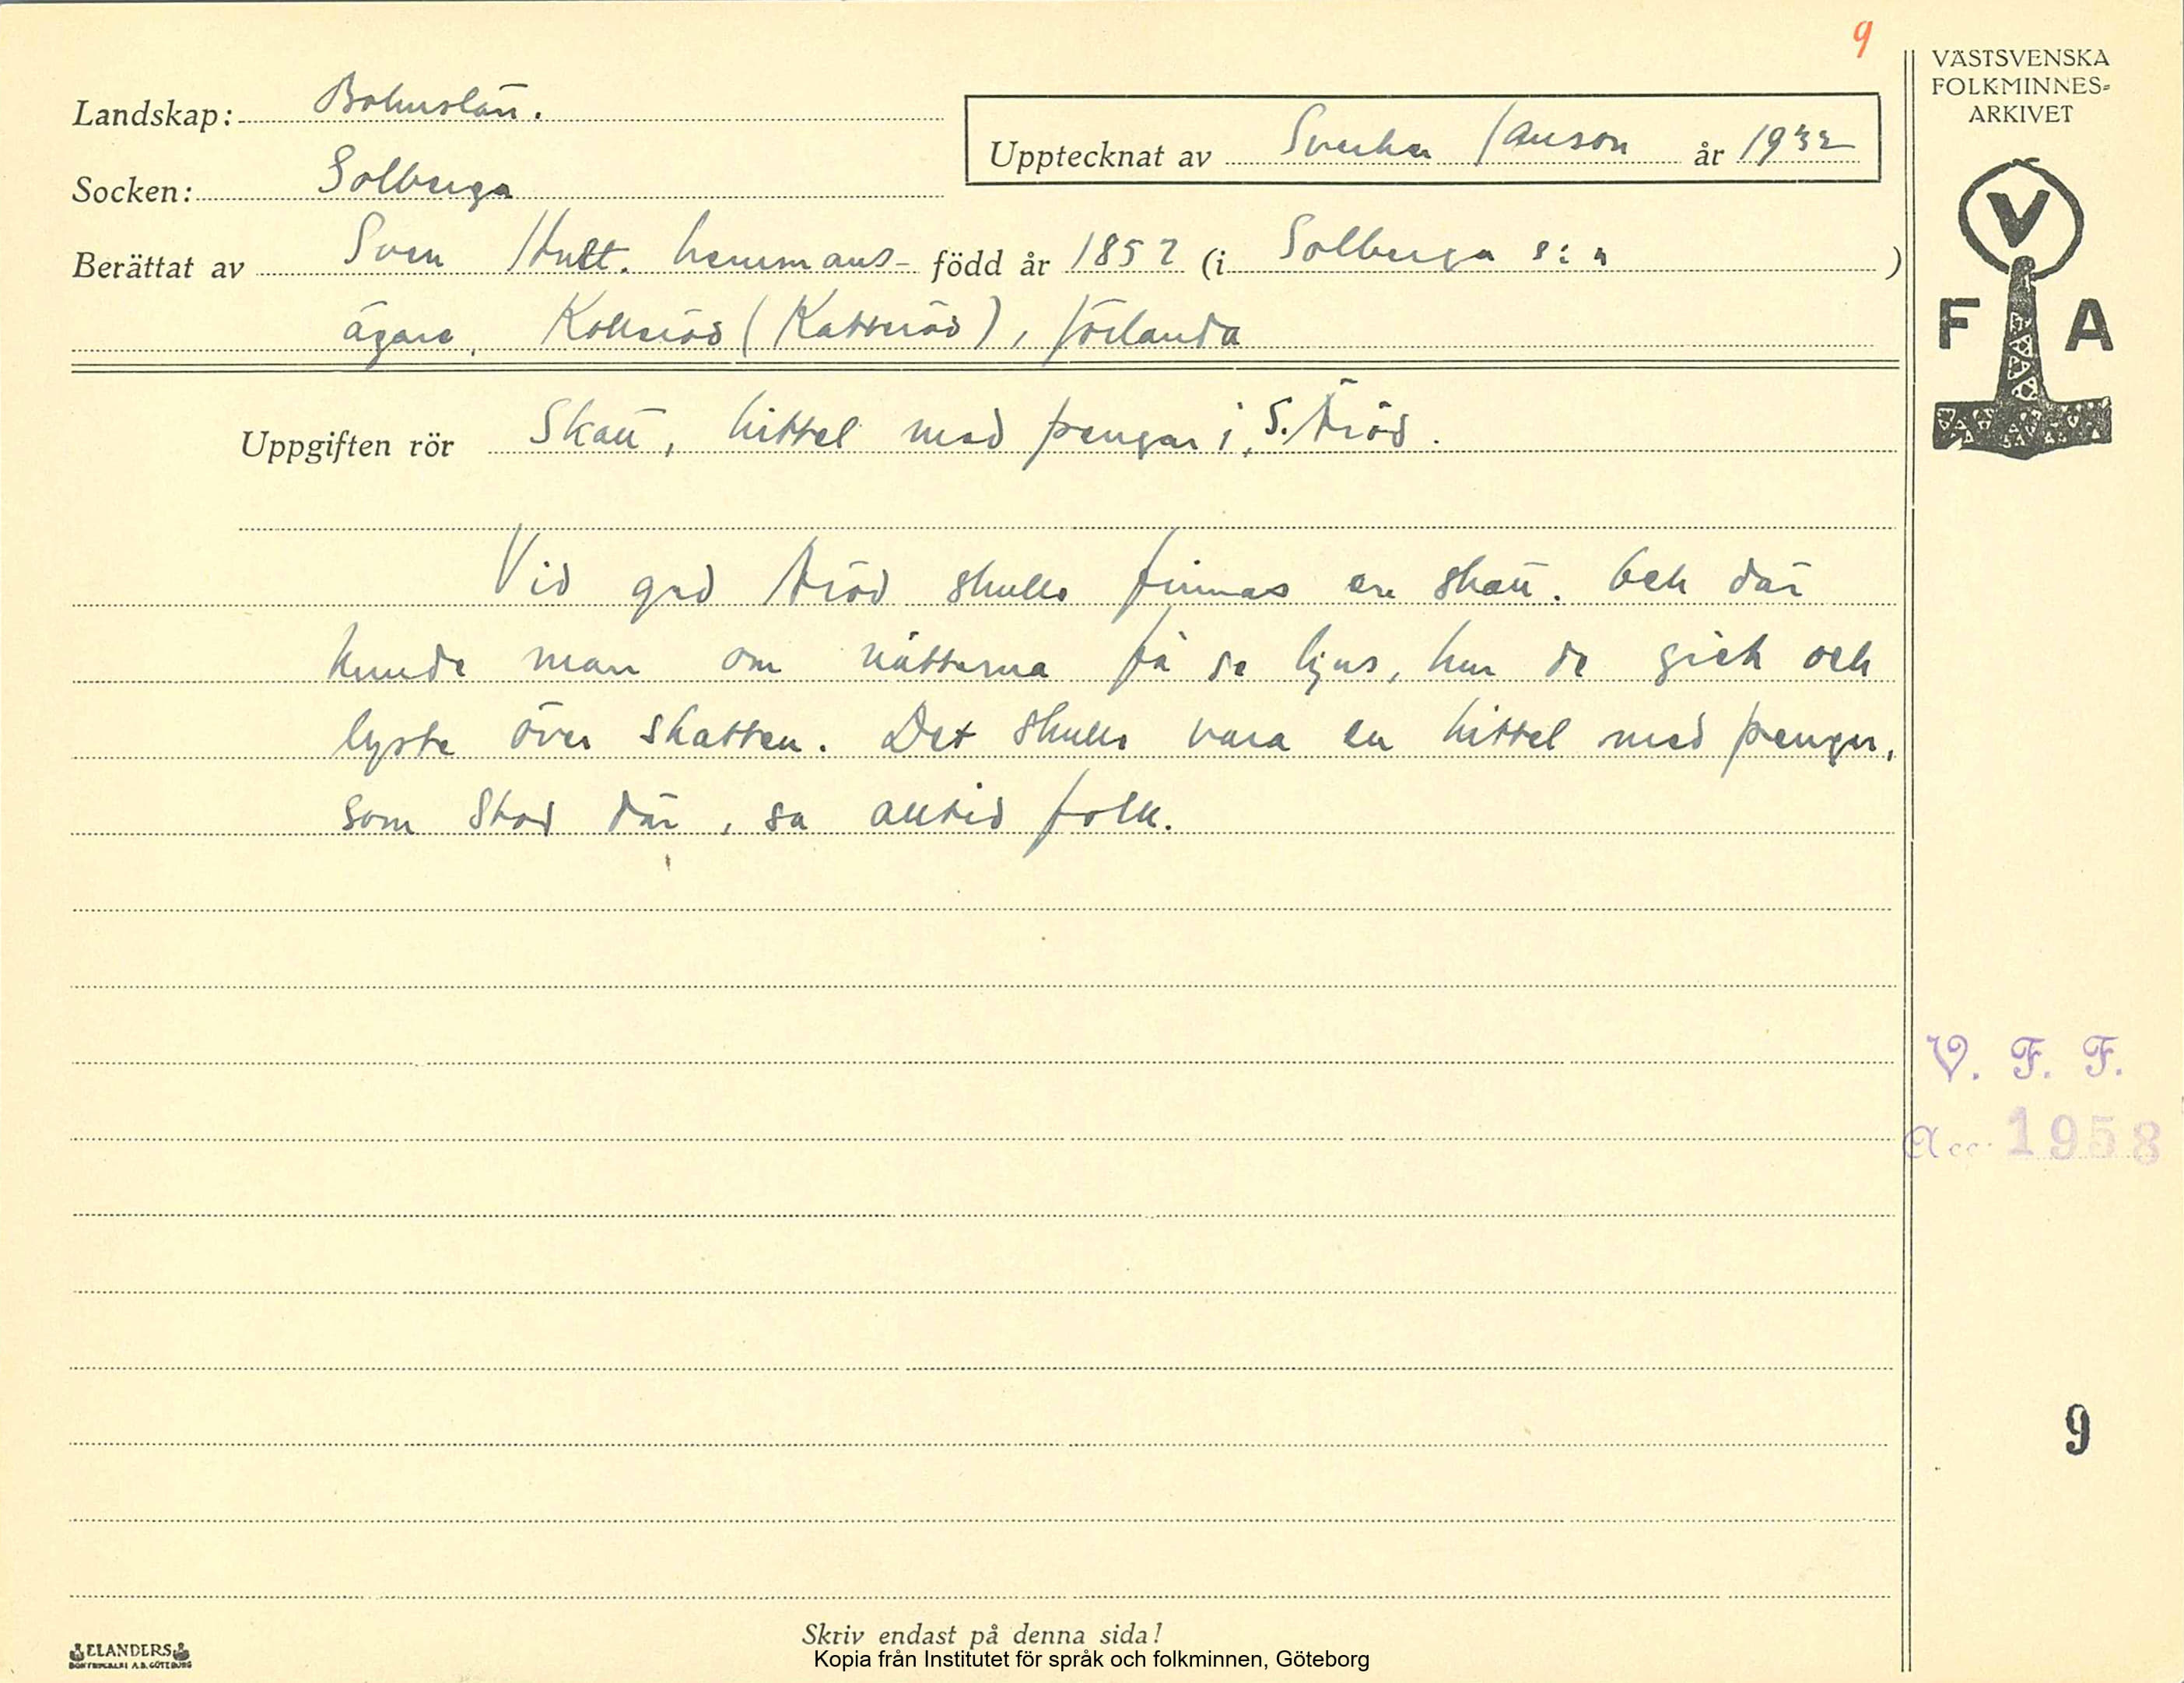 9
VÄSTSVENSKA
FOLKMINNES-
ARKIVET
V
F A
Landskap: Bohuslän.
Upptecknat av Sverker Janson år 1932
Socken: Solberga
Berättat av Sven Hult. hemmans- född år 1852 (i Solberga s:n)
ägare, (Kattröd), Jörlanda
Uppgiften rör Skatt, kittel med pengar i S. Äröd.
Vid grd Äröd skulle finnas en skatt. Och där
kunde man om nätterna få se ljus, hur de gick och
lyste över skatten. Det skulle vara en kittel med pengar,
som stod där, sa alltid folk.
V. F. F.
Acc. 1958
9
Skriv endast på denna sida!
ELANDERS
Kopia från Institutet för språk och folkminnen, Göteborg